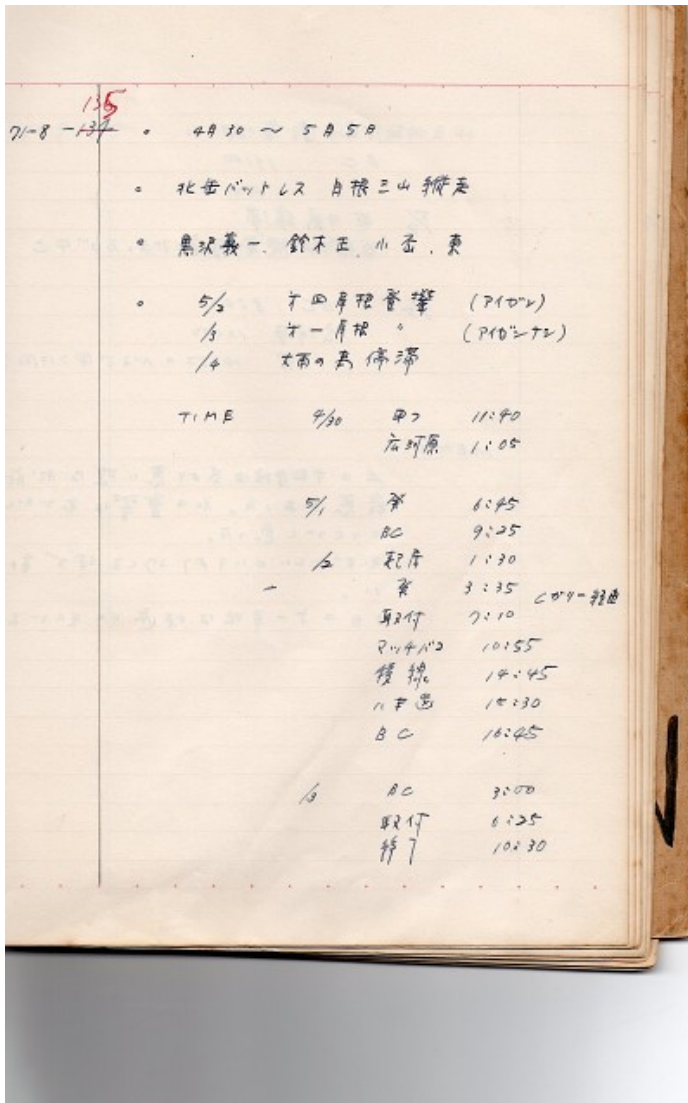 135
71-8 -134 ○ 4月30 〜 5月5日
○ 北岳バットレス 白根三山縦走
○ 黒沢義一、鈴木正、小 、東
○ 5/2 オ四尾根登攀 (アイゼン)
/3 オ一尾根 〃 (アイゼンナシ)
/4 大雨の為停滞
TIME 4/30 甲フ 11:40
広河原 1:05
5/1 発 6:45
BC 9:25
/2 起床 1:30
発 3:35 Cガリー経由
取付 7:10
マッチバコ 10:55
稜線 14:45
八本歯 15:30
BC 16:45
/3 BC 3:00
取付 6:25
終了 10:30